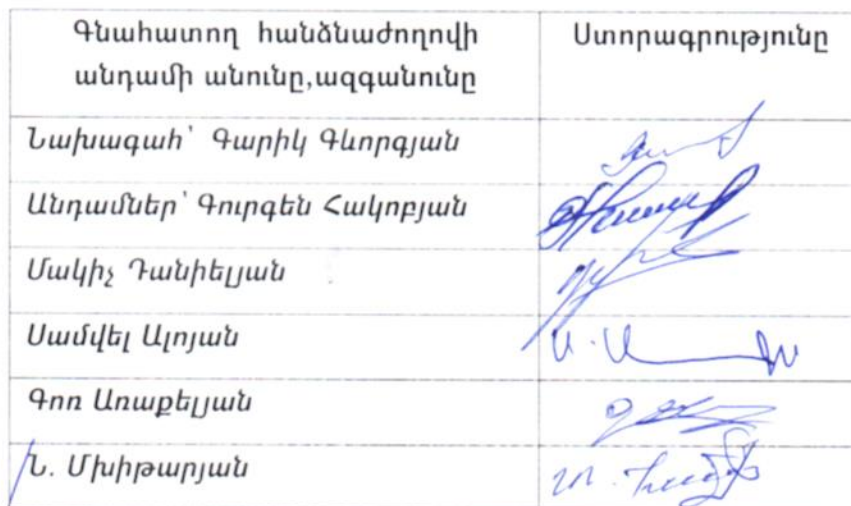 Գնահատող հանձնաժողովի Ստորագրությունը
անդամի անունը,ազգանունը
Նախագահ՝ Գարիկ Գևորգյան
Անդամներ՝ Գուրգեն Հակոբյան
Մակիչ Դանիելյան
Սամվել Ալոյան
Գոռ Առաքելյան
Ն. Մխիթարյան